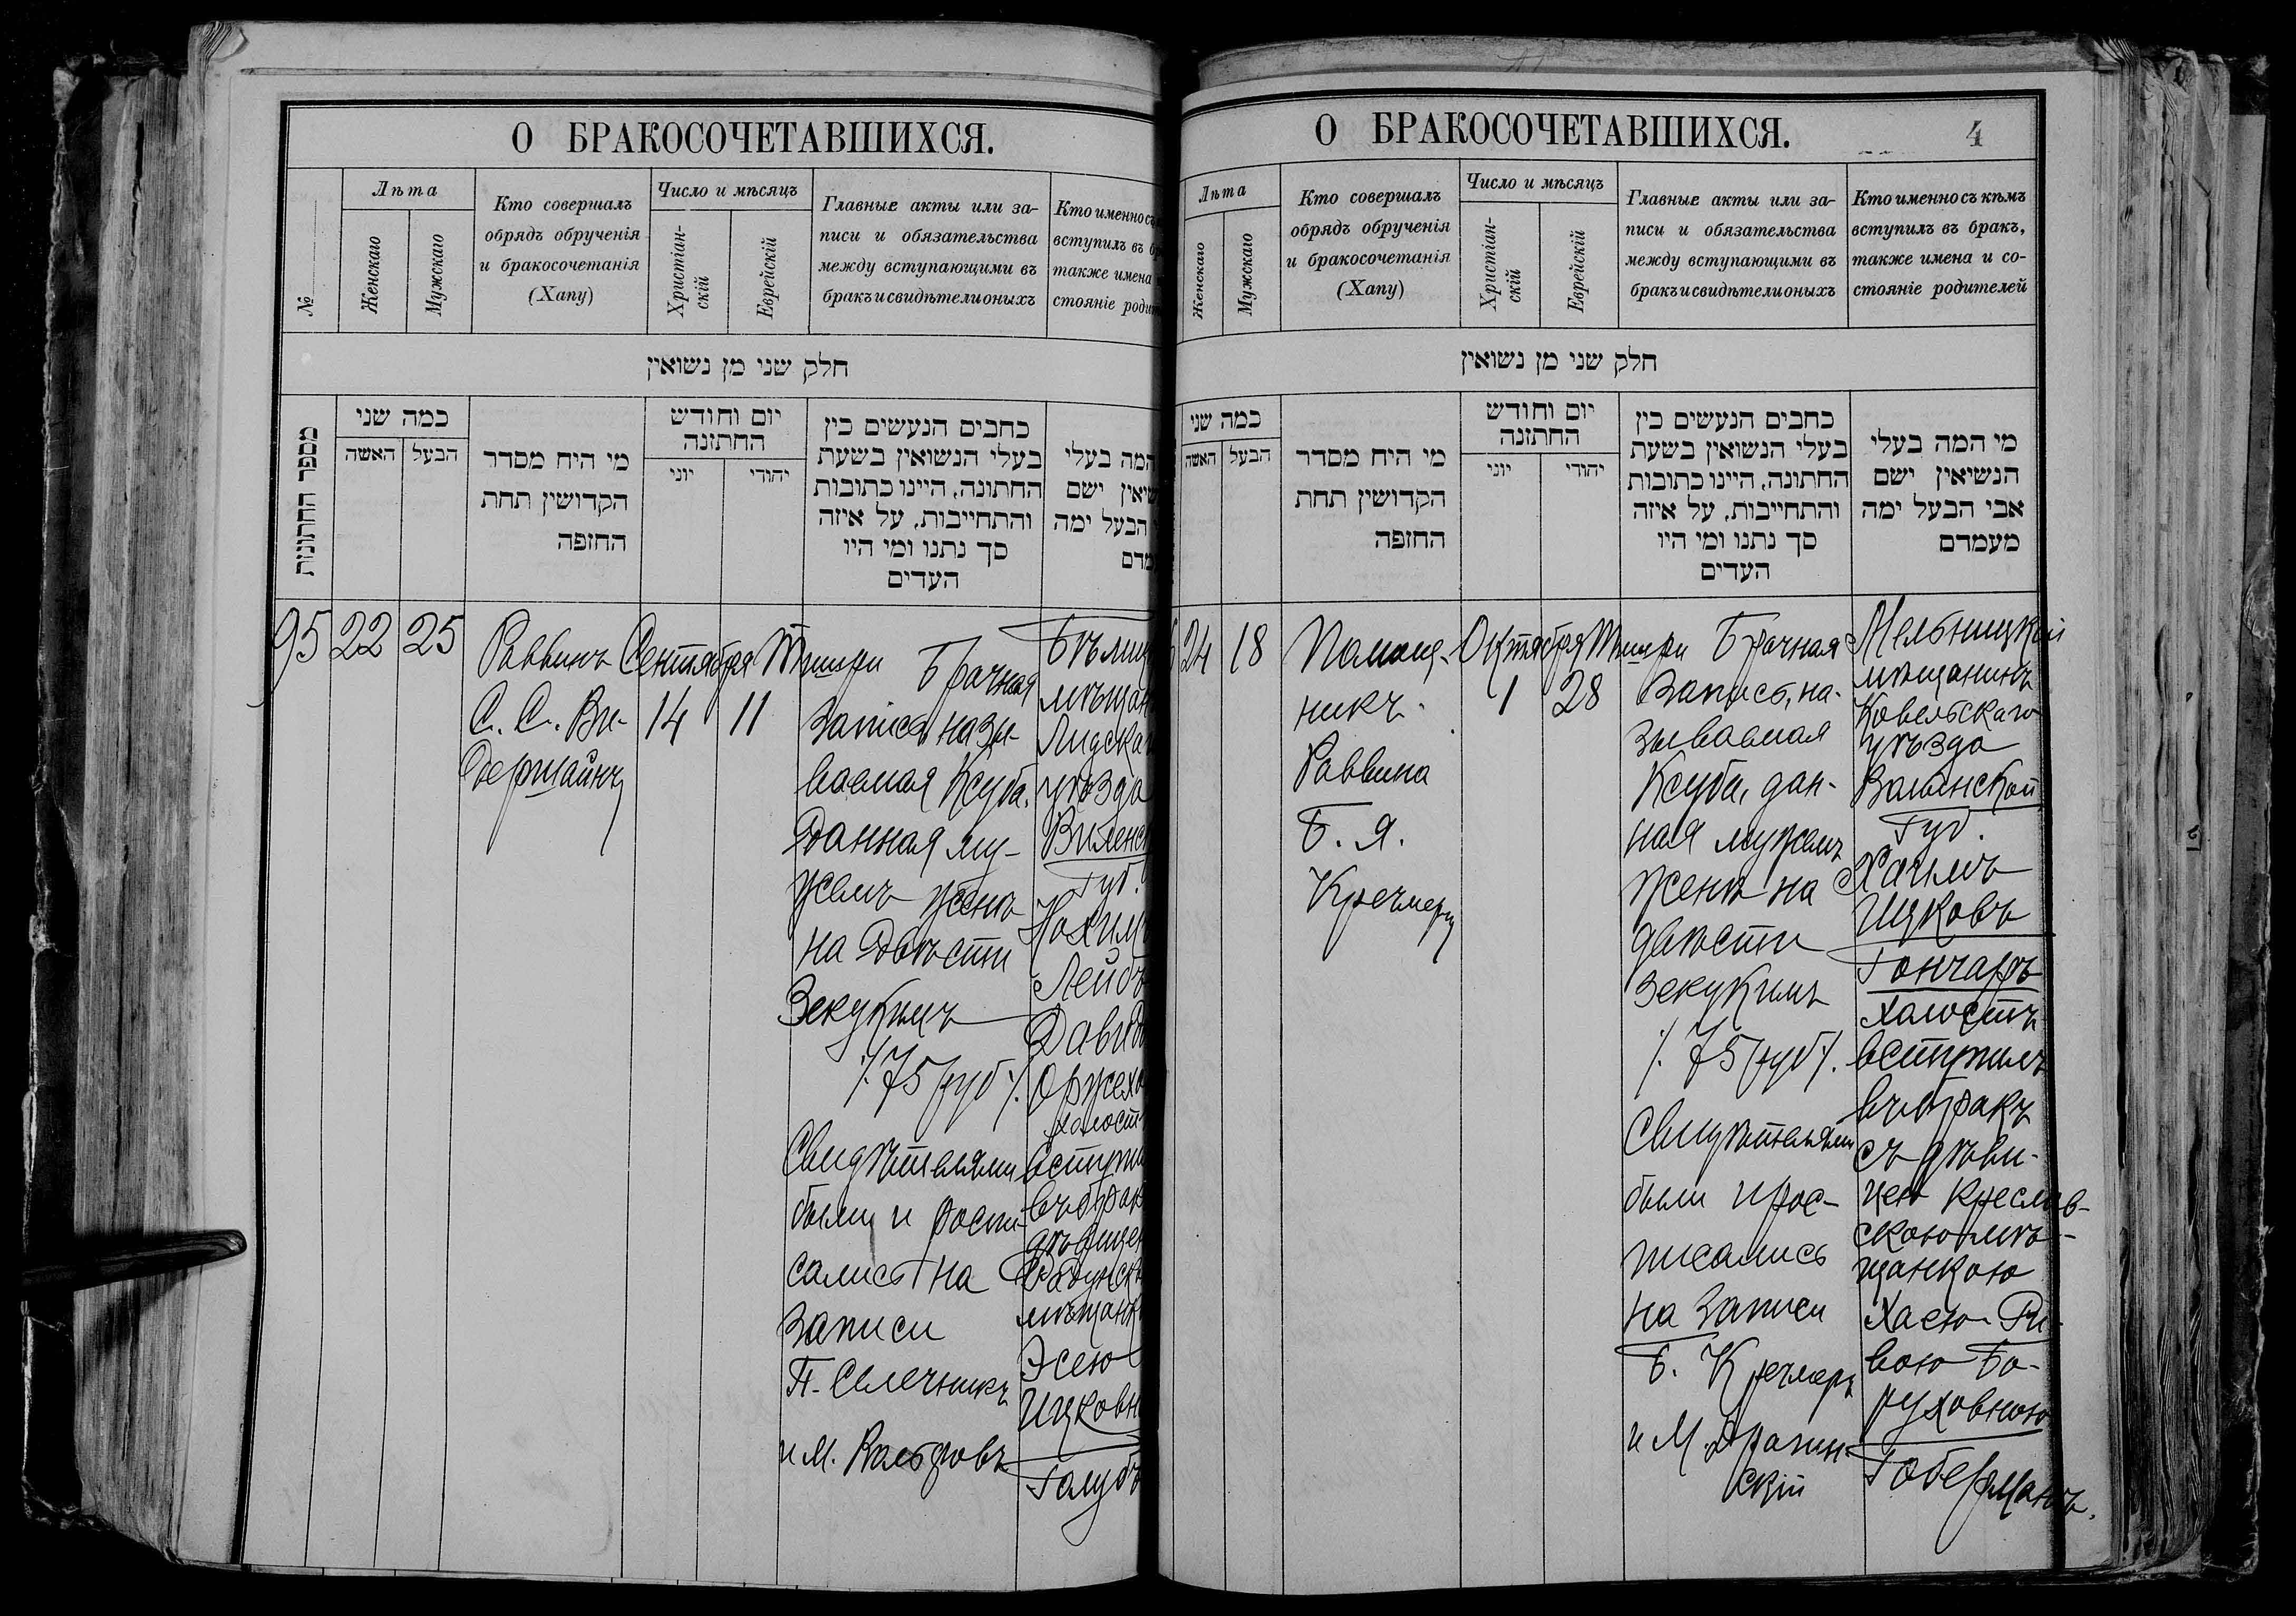 О БРАКОСОЧЕТАВШИХСЯ.
№
Лѣта
Женскаго
Мужскаго
Кто совершалъ
обрядъ обрученія
и бракосочетанія
(Хапу)
Число и мѣсяцъ
Христіан-
скій
Еврейскій
Главные акты или за-
писи и обязательства
между вступающими въ
бракъ и свидѣтели оныхъ
Кто именно съ
вступилъ въ
также имена
стояніе
חלק שני מן נשואין
מספר החתונות
כמה שני
האשה
הבעל
מי היח מסדר
הקדושין תחת
החופה
יום וחודש
החתונה
יוני
יהודי
כחבים הנעשים כין
בעלי הנשואין בשעת
החתונה, היינו כתובות
והתחייבות, על איזה
סך נתנו ומי היו
העדים
המה בעלי
ישם
הבעל ימה
95
22
25
Раввинъ
С. С. Ви-
дершайнъ
Сентября
14
Тишри
11
Брачная
запись назы-
ваемая Ксуба,
данная му-
жемъ женѣ
на двѣсти
Зекукимъ
/. 75 руб /.
Свидѣтелями
были и распи-
сались на
записи
П. Селечникъ
и М.
Лидска
уѣзда
Виленс
Губ.
Лейб
Давид
холост
вступи
въ брак
дѣвицею
мѣщанк
Эсею
Ицковн
Голубъ
О БРАКОСОЧЕТАВШИХСЯ.
4
Лѣта
Женскаго
Мужскаго
Кто совершалъ
обрядъ обрученія
и бракосочетанія
(Хапу)
Число и мѣсяцъ
Христіан-
скій
Еврейскій
Главные акты или за-
писи и обязательства
между вступающими въ
бракъ и свидѣтели оныхъ
Кто именно съ кѣмъ
вступилъ въ бракъ,
также имена и со-
стояніе родителей
חלק שני מן נשואין
כמה שני
האשה
הבעל
מי היח מסדר
הקדושין תחת
החופה
יום וחודש
החתונה
יוני
יהודי
כחבים הנעשים כין
בעלי הנשואין בשעת
החתונה, היינו כתובות
והתחייבות, על איזה
סך נתנו ומי היו
העדים
מי המה בעלי
הנשיאין ישם
אבי הבעל ימה
מעמדם
24
18
Помощ-
никъ
Раввина
Б. Я.
Кречмеръ
Октября
1
Тишри
28
Брачная
запись, на-
зываемая
Ксуба, дан-
ная мужемъ
женѣ на
двѣсти
зекукимъ
/. 75 руб /.
Свидѣтелями
были и рос-
писались
на записи
Б. Кречмеръ
и М.
скій
Мельницкій
мѣщанинъ
Ковельскаго
уѣзда
Волынской
Губ.
Хаимъ
Ицковъ
Гончаръ
холостъ
вступилъ
въ бракъ
съ дѣви-
цею Креслав-
скою мѣ-
щанкою
Хаею-Ри-
вою Бо-
руховною
Гоберманъ.